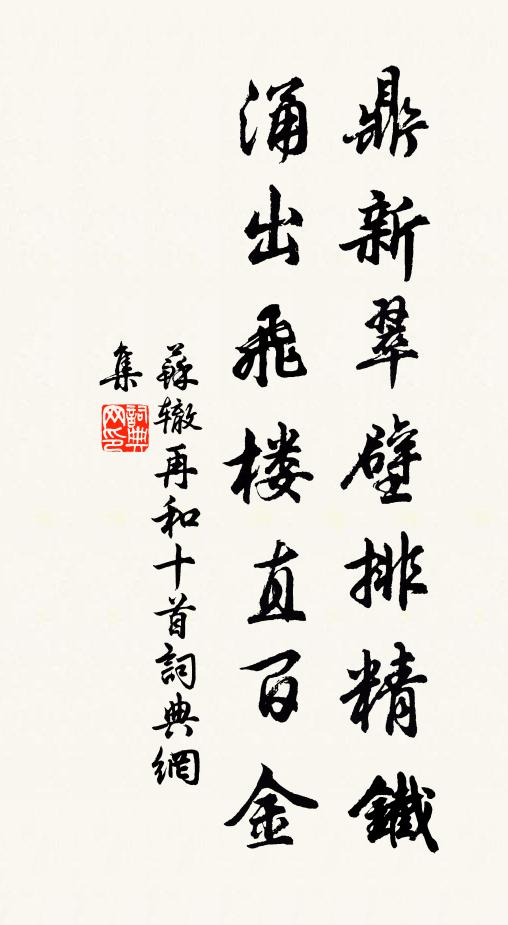 鼎新翠壁排精鐵
涌出飛楼直百金
蘇辙再和十首詞典網
集
詞典网印